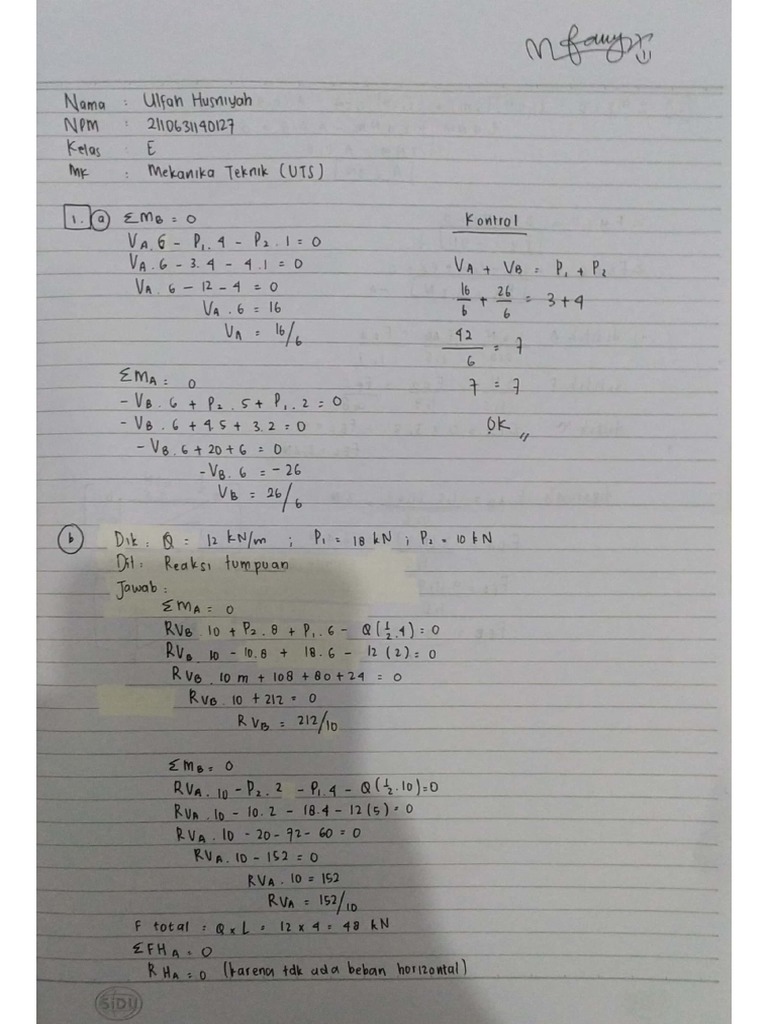 Nama : Ulfah Husniyah
NPM : 2110631140127
Kelas : E
MK : Mekanika Teknik (UTS)
1. a ΣMB = 0
VA. 6 - P1. 4 - P2. 1 = 0
VA. 6 - 3. 4 - 4. 1 = 0
VA. 6 - 12 - 4 = 0
VA. 6 = 16
VA = 16/6
ΣMA = 0
- VB. 6 + P2. 5 + P1. 2 = 0
- VB. 6 + 4.5 + 3.2 = 0
- VB. 6 + 20 + 6 = 0
- VB. 6 = - 26
VB = 26/6
Kontrol
VA + VB = P1 + P2
16/6 + 26/6 = 3 + 4
42/6 = 7
7 = 7
OK
b Dik : Q = 12 kN/m ; P1 = 18 kN ; P2 = 10 kN
Dit : Reaksi tumpuan
Jawab :
ΣMA = 0
RVB. 10 + P2. 8 + P1. 6 - Q(1/2.4) = 0
RVB. 10 - 10.8 + 18.6 - 12 (2) = 0
RVB. 10 m + 108 + 80 + 24 = 0
RVB. 10 + 212 = 0
RVB = 212/10
ΣMB = 0
RVA. 10 - P2. 2 - P1. 4 - Q(1/2.10) = 0
RVA. 10 - 10. 2 - 18.4 - 12(5) = 0
RVA. 10 - 20 - 72 - 60 = 0
RVA. 10 - 152 = 0
RVA. 10 = 152
RVA = 152/10
F total = Q x L = 12 x 4 = 48 kN
ΣFHA = 0
RHA = 0 (karena tdk ada beban horizontal)
SIDU